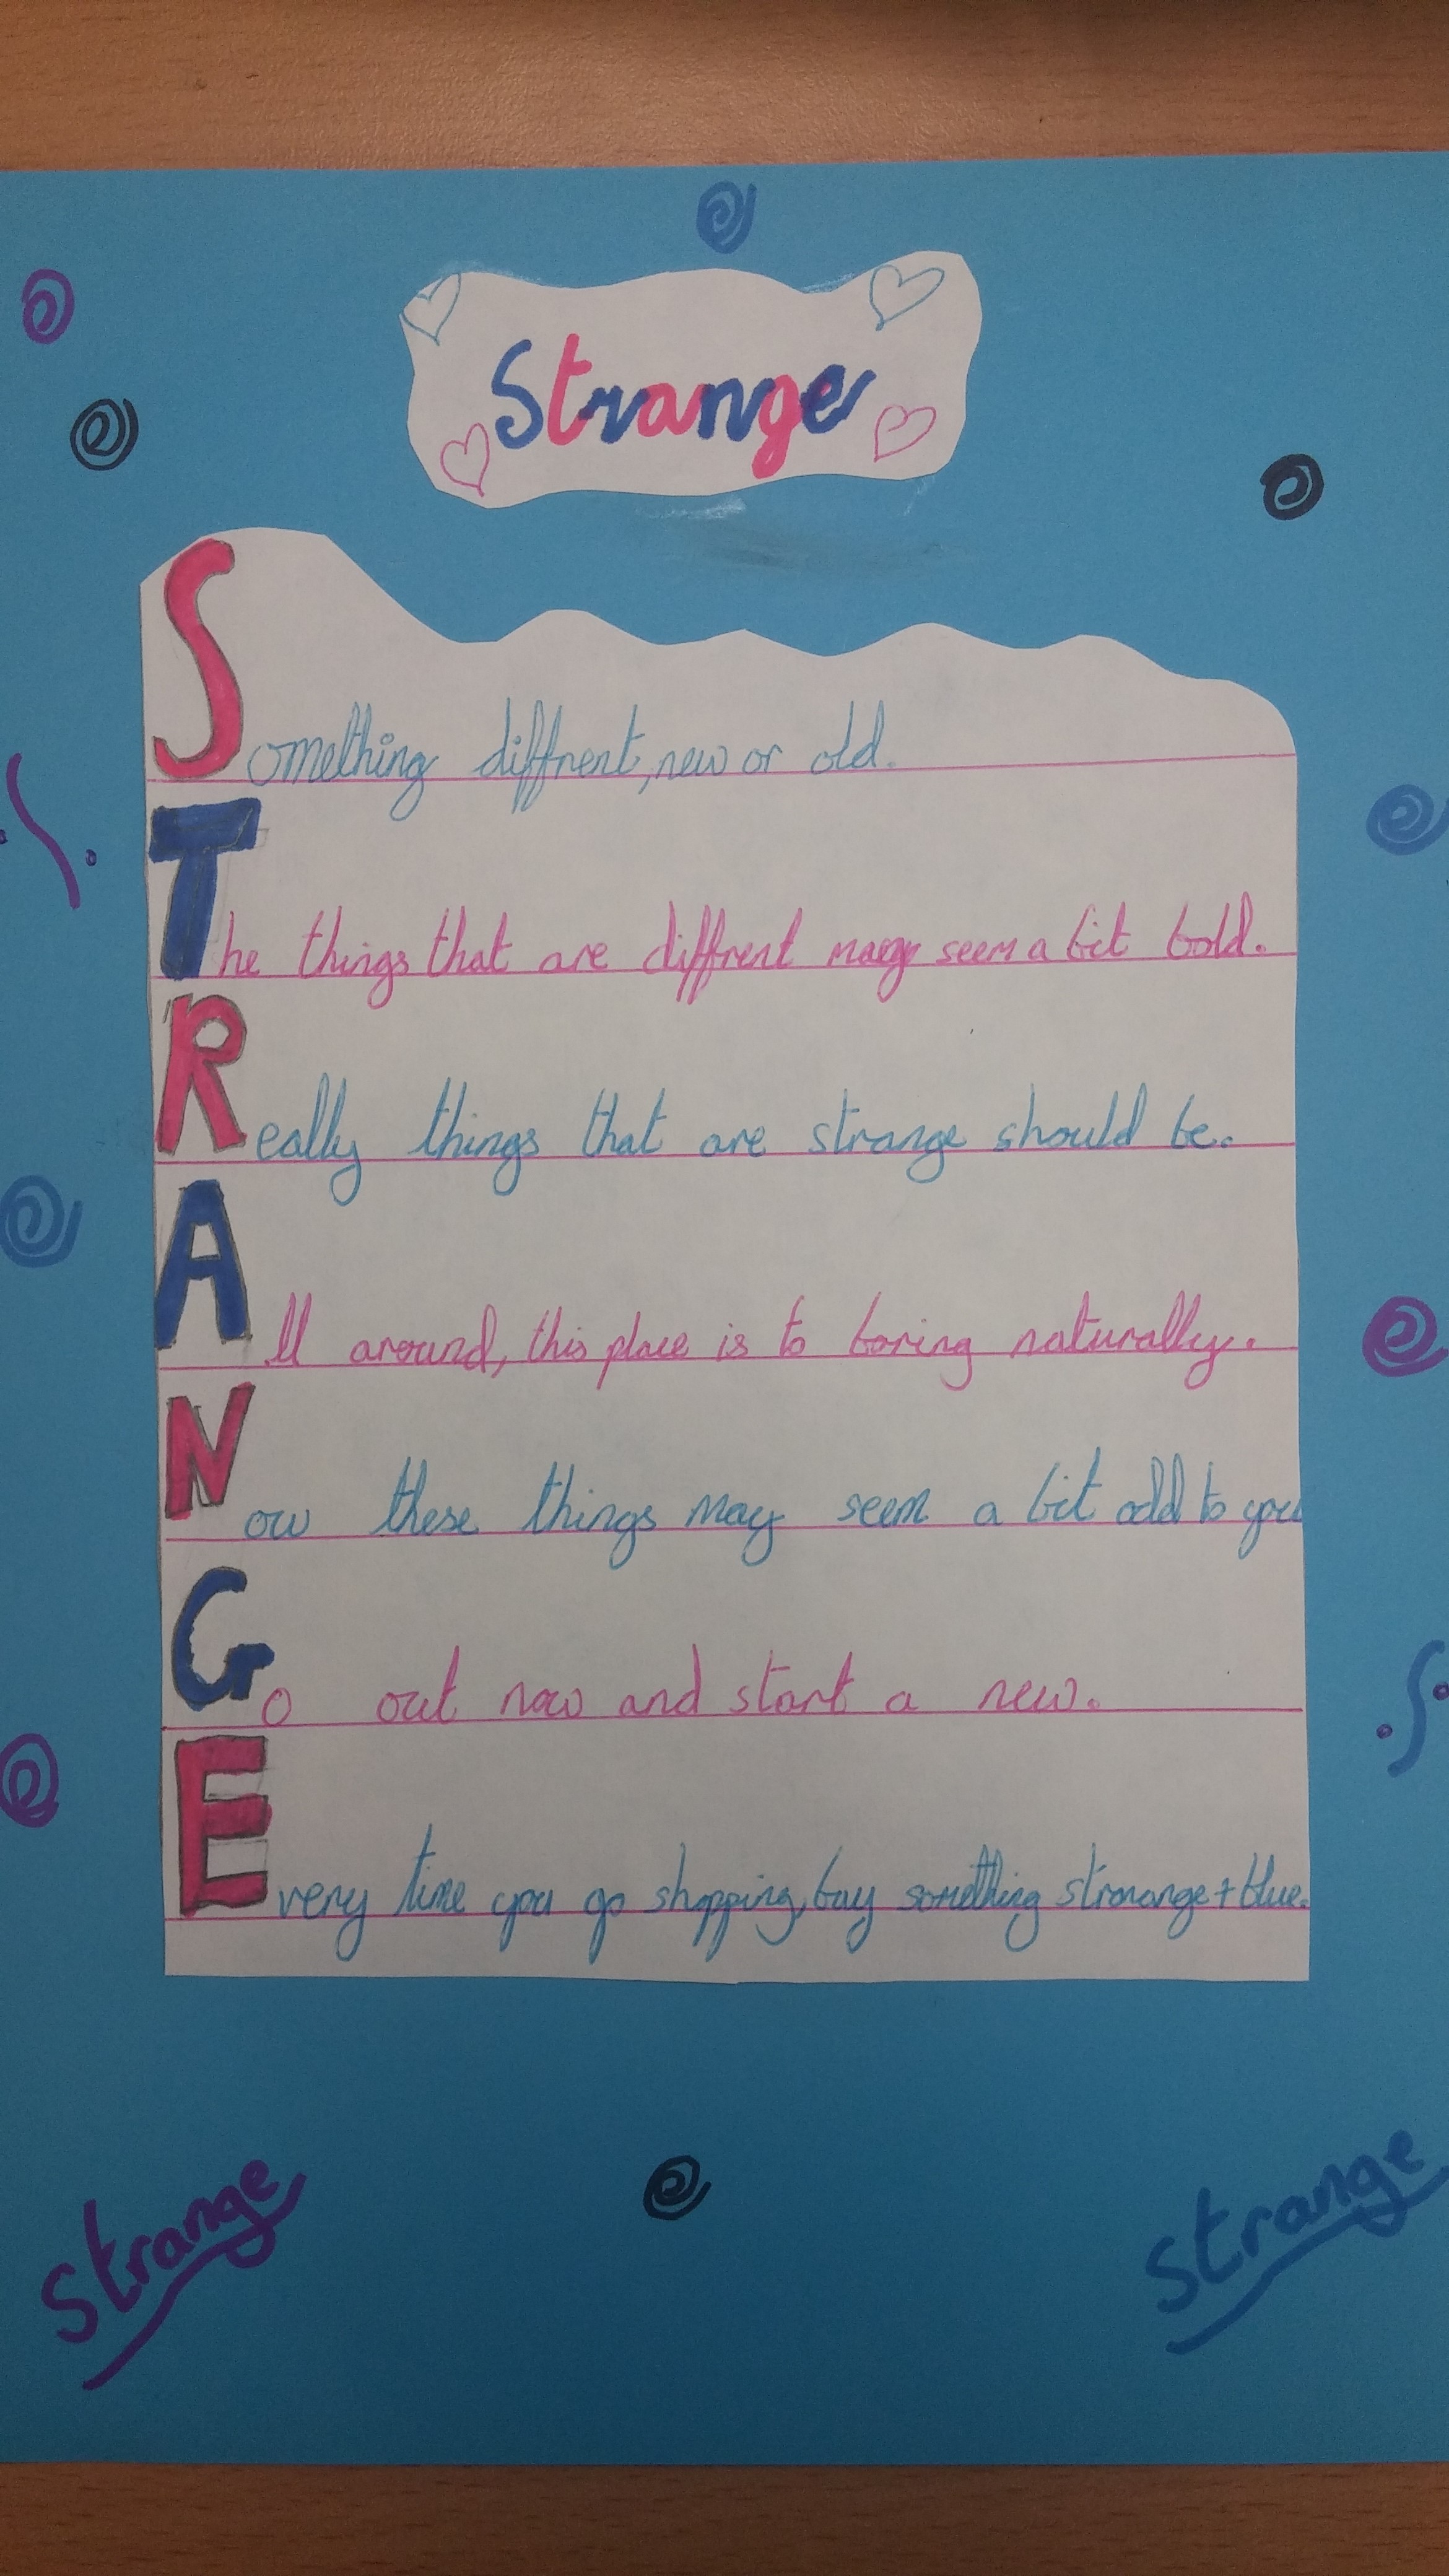 Strange
Something diffrent, new or old.
The things that are diffrent may seem a bit bold.
Really things that are strange should be.
All around, this place is to boring naturally.
Now these things may seem a bit odd to you
Go out now and start a new.
Every time you go shopping, buy something stranange + blue.
Strange
Strange